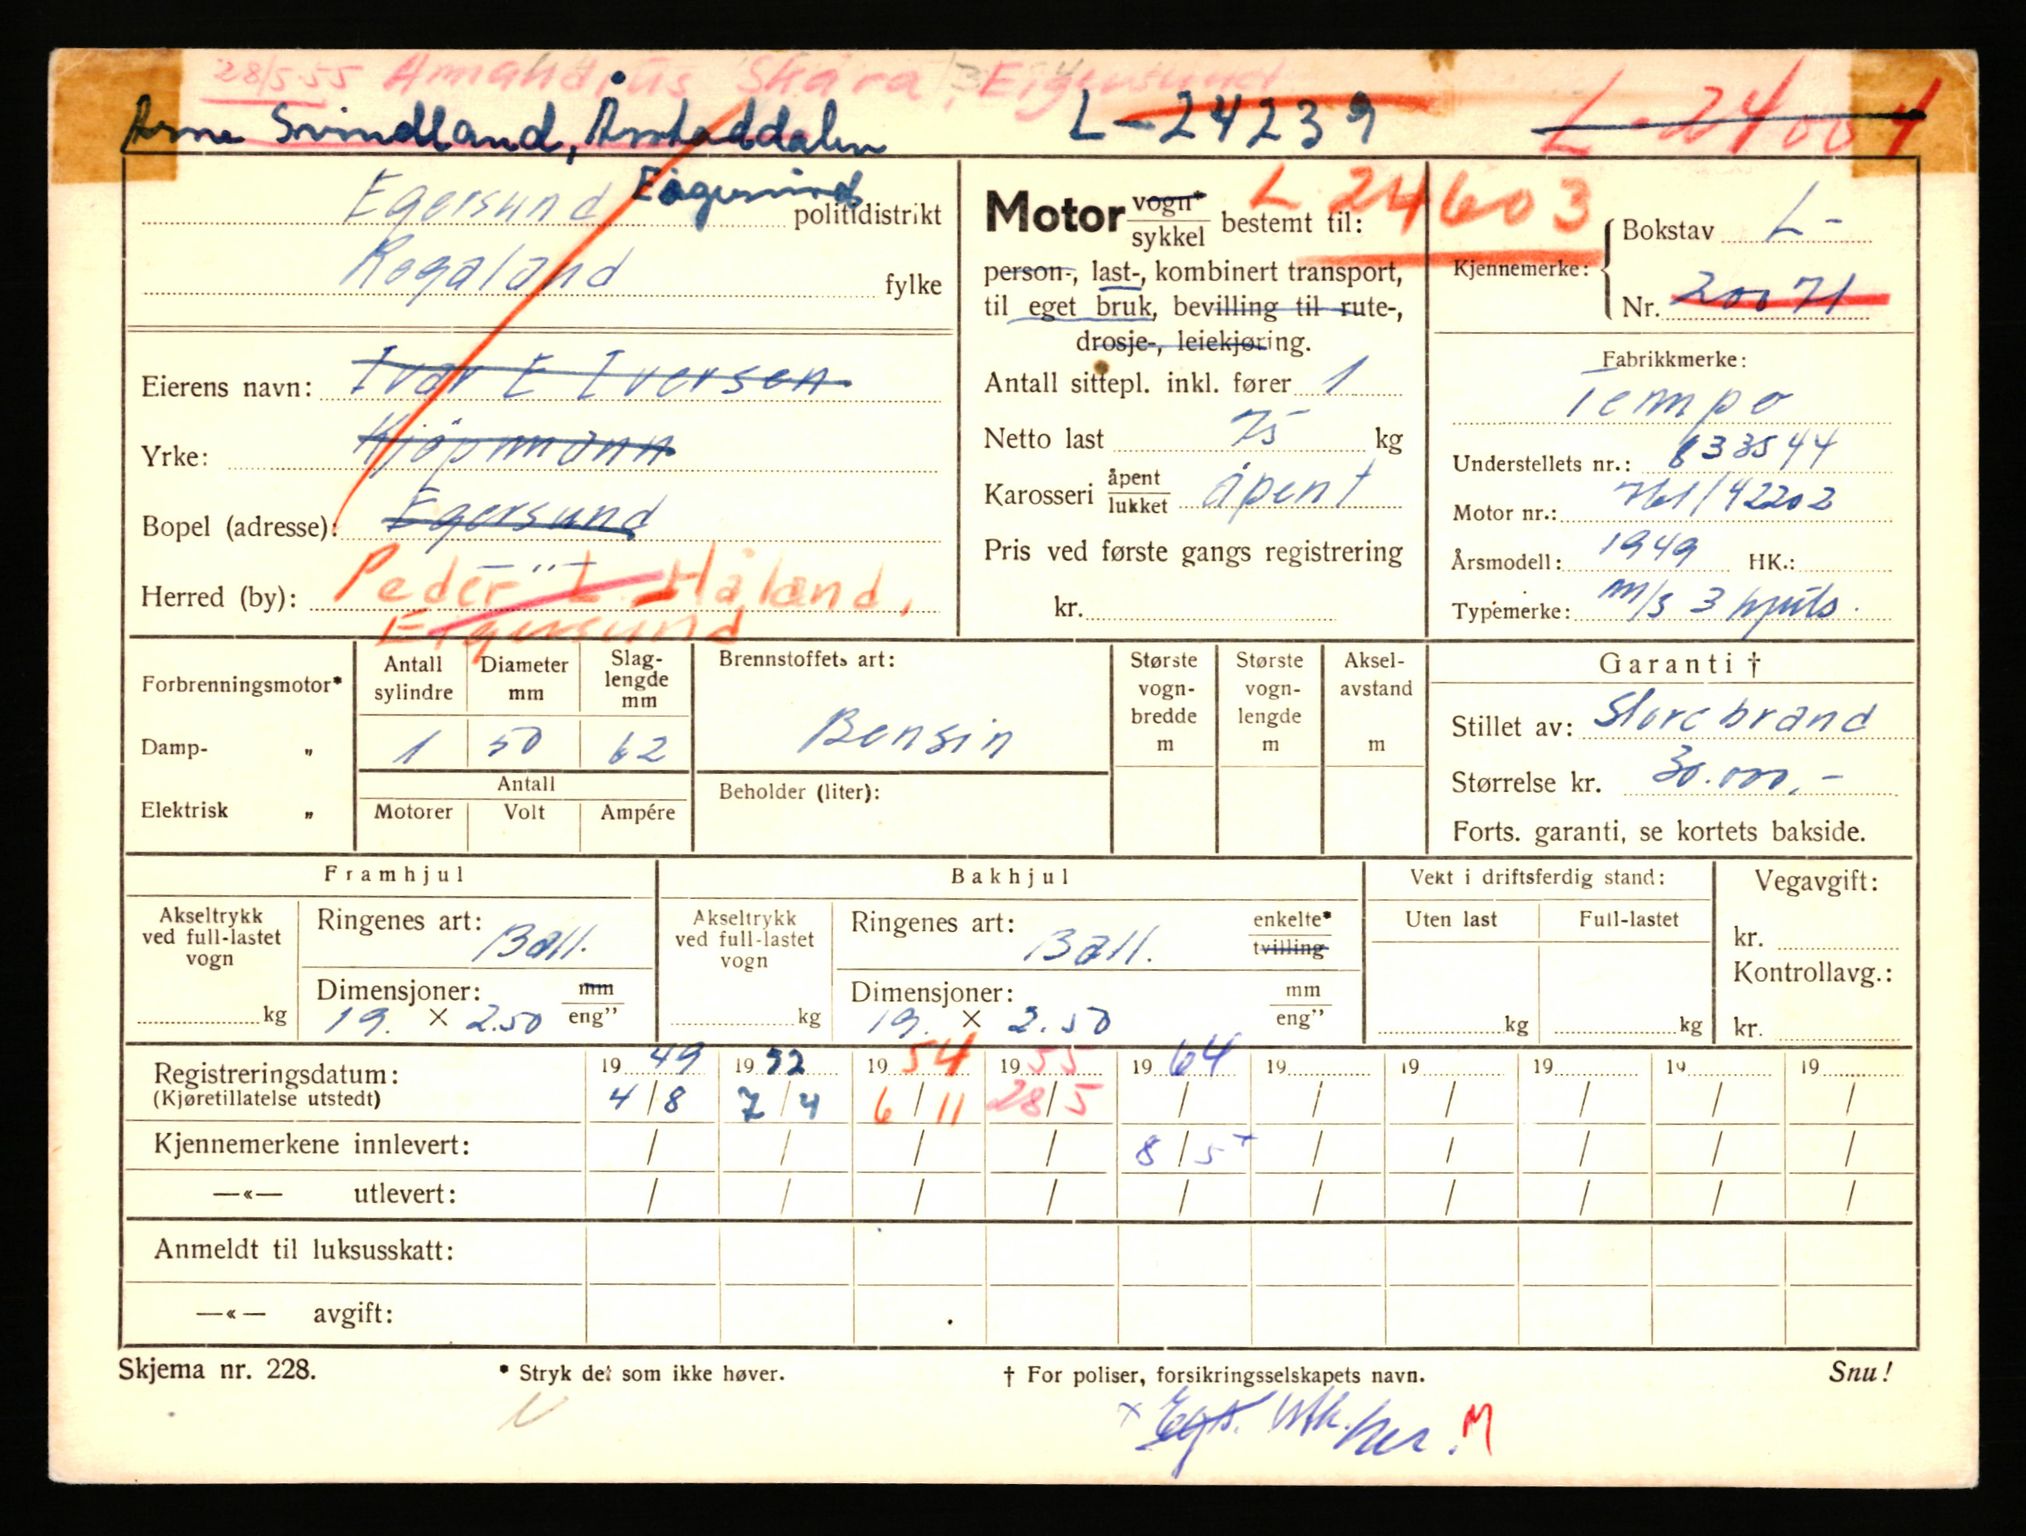 28/5-55 Amandus Skåra, Eigersund
Arne Svindland, Årstaddalen L-24239 L-24004
Eigersund
Egersund politidistrikt
Rogaland fylke
Eierens navn: Ivar E Iversen
Yrke: Kjøpmann
Bopel (adresse): Egersund
Herred (by): —"— Peder L. Håland,
Eigersund
Motor vogn* sykkel bestemt til:
L 24603
person-, last-, kombinert transport,
til eget bruk, bevilling til rute-,
drosje-, leiekjøring.
Antall sittepl. inkl. fører 1
Netto last 75 kg
Karosseri åpent lukket åpent
Pris ved første gangs registrering
kr.
Kjennemerke: Bokstav L-
Nr. 20071
Fabrikkmerke:
Tempo
Understellets nr.: 833544
Motor nr.: 761/42202
Årsmodell: 1949 HK.:
Typemerke: m/s 3 hjuls.
Forbrenningsmotor*
Damp- "
Elektrisk "
Antall sylindre Diameter mm Slag-lengde mm
1 50 62
Antall
Motorer Volt Ampére
Brennstoffets art:
Bensin
Beholder (liter):
Største vogn-bredde m
Største vogn-lengde m
Aksel-avstand m
Garanti †
Stillet av: Storebrand
Størrelse kr. 30.000,-
Forts. garanti, se kortets bakside.
Framhjul
Akseltrykk ved full-lastet vogn
kg
Ringenes art: Ball.
Dimensjoner: mm eng"
19. × 2.50
Bakhjul
Akseltrykk ved full-lastet vogn
kg
Ringenes art: Ball. enkelte* tvilling
Dimensjoner: mm eng"
19. × 2.50
Vekt i driftsferdig stand:
Uten last Full-lastet
kg kg
Vegavgift:
kr.
Kontrollavg.:
kr.
Registreringsdatum: 1949 1952 1954 1955 1964 19 19 19 19 19
(Kjøretillatelse utstedt) 4/8 7/4 6/11 28/5 / / / / / /
Kjennemerkene innlevert: / / / / 8/5+ / / / / /
—«— utlevert: / / / / / / / / / /
Anmeldt til luksusskatt:
—«— avgift:
Skjema nr. 228. * Stryk det som ikke høver. † For poliser, forsikringsselskapets navn. Snu!
× Egs. M